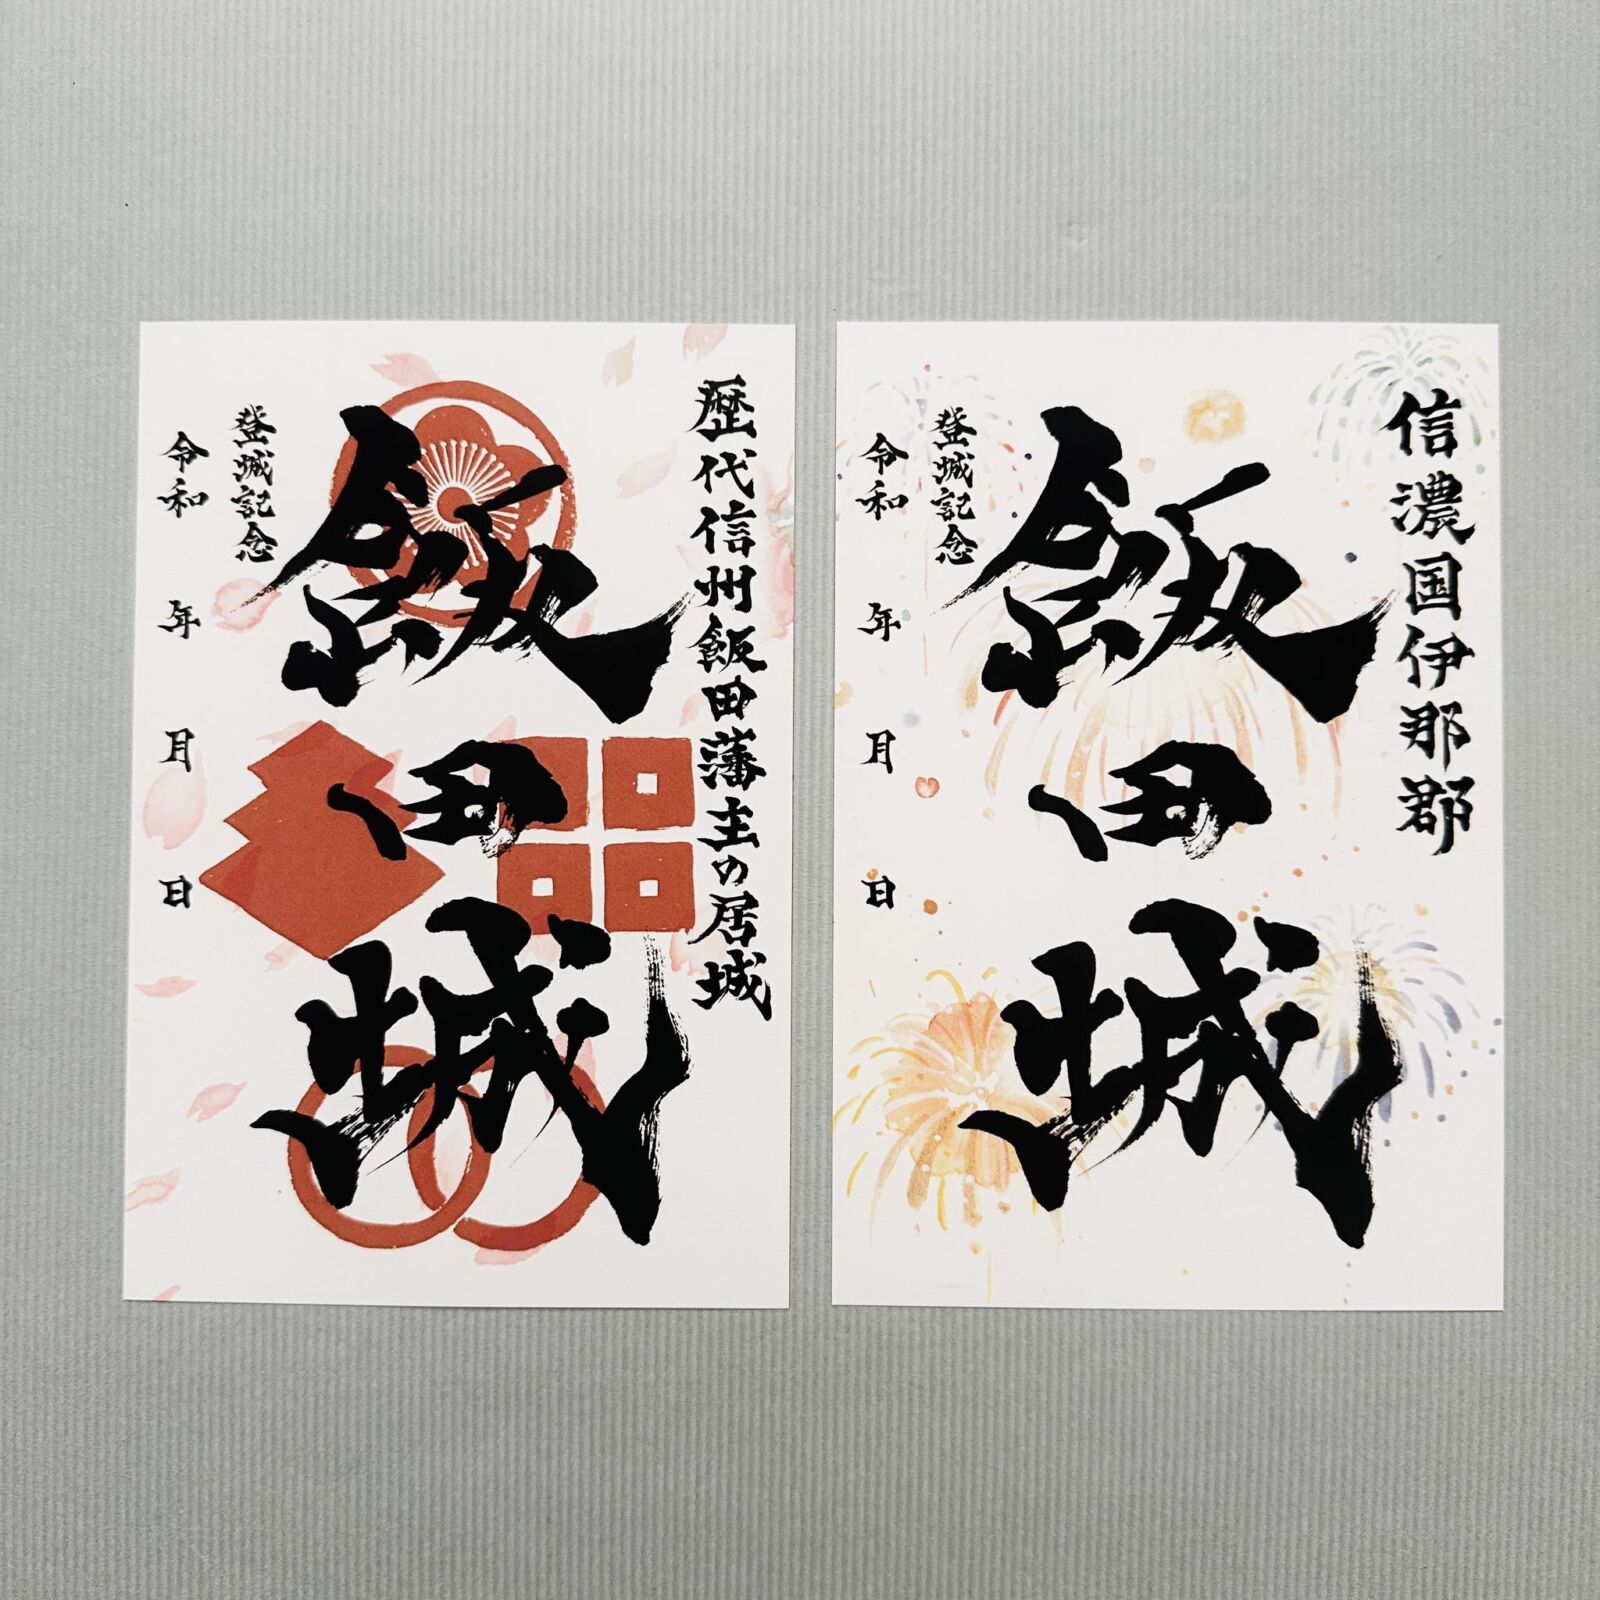 歴代信州飯田藩主の居城
飯田城
登城記念
令和 年 月 日
信濃国伊那郡
飯田城
登城記念
令和 年 月 日